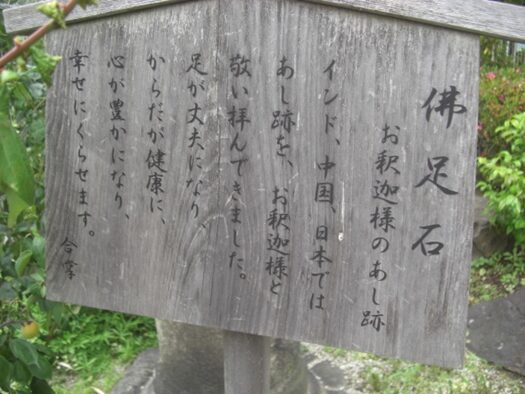 佛足石
お釈迦様のあし跡
インド、中国、日本では
あし跡を、お釈迦様と
敬い拝んできました。
足が丈夫になり、
からだが健康に、
心が豊かになり、
幸せにくらせます。
合掌